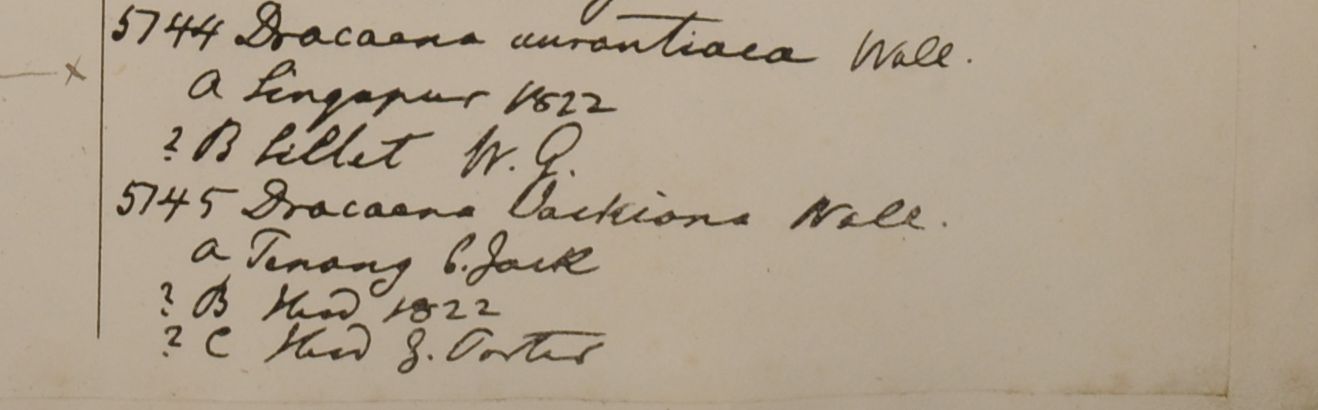 5744 Dracaena aurantiaca Wall.
x
a Singapur 1822
? B Sillet W. G.
5745 Dracaena Jackiana Wall.
a Penang C. Jack
? B Ibid 1822
? C Ibid G. Porter